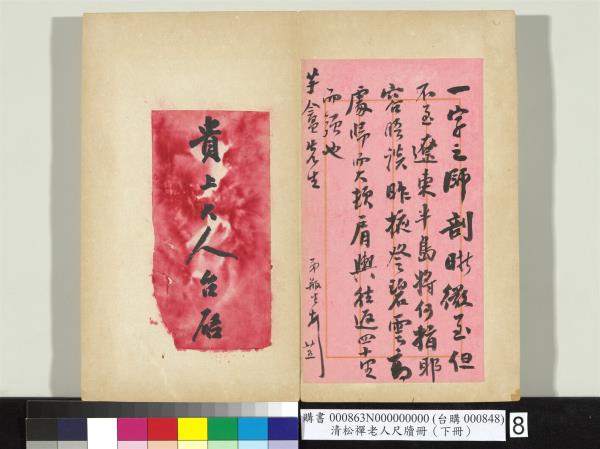 一字之師剖晰微至但
不至遼東半島將何指耶
容晤談昨掖登碧雲高
處歸而大頓肩輿往返四十里
而頓也
盦先生
廿五
貴上大人台啓
購書 000863N000000000 (台購 000848)
清松禪老人尺牘冊（下冊）
8